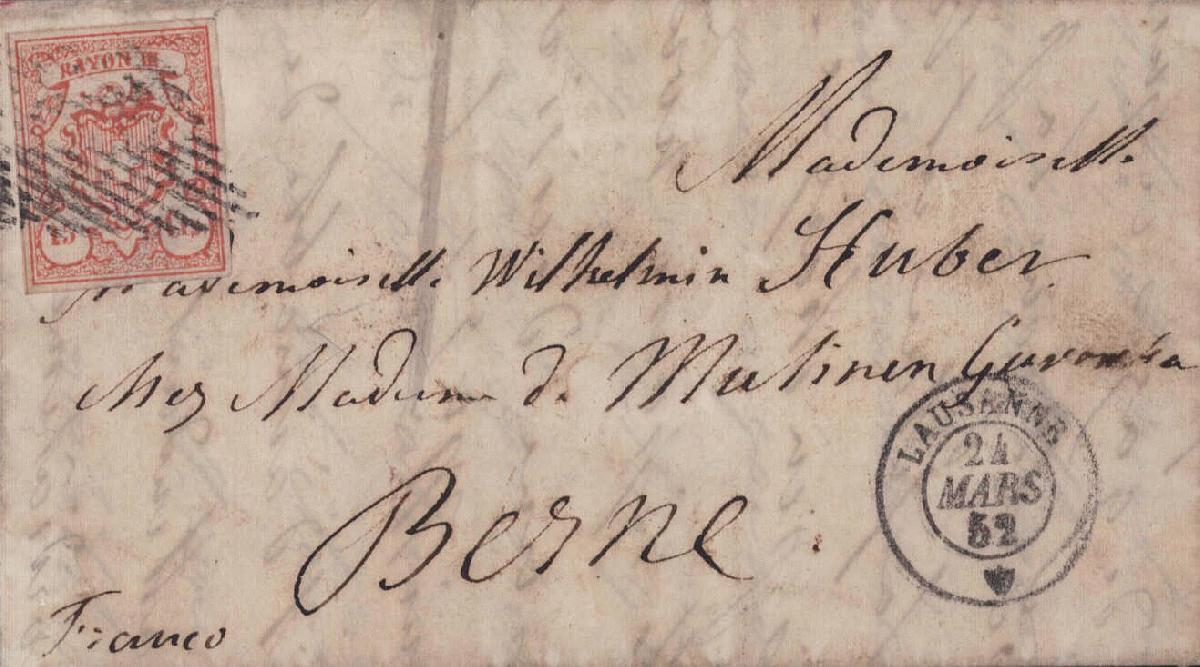 RAYON III
15
Mademoiselle
Mademoiselle Wilhelmin Huber
chez Madame de Mulinen
Berne.
Franco
LAUSANNE
24
MARS
52